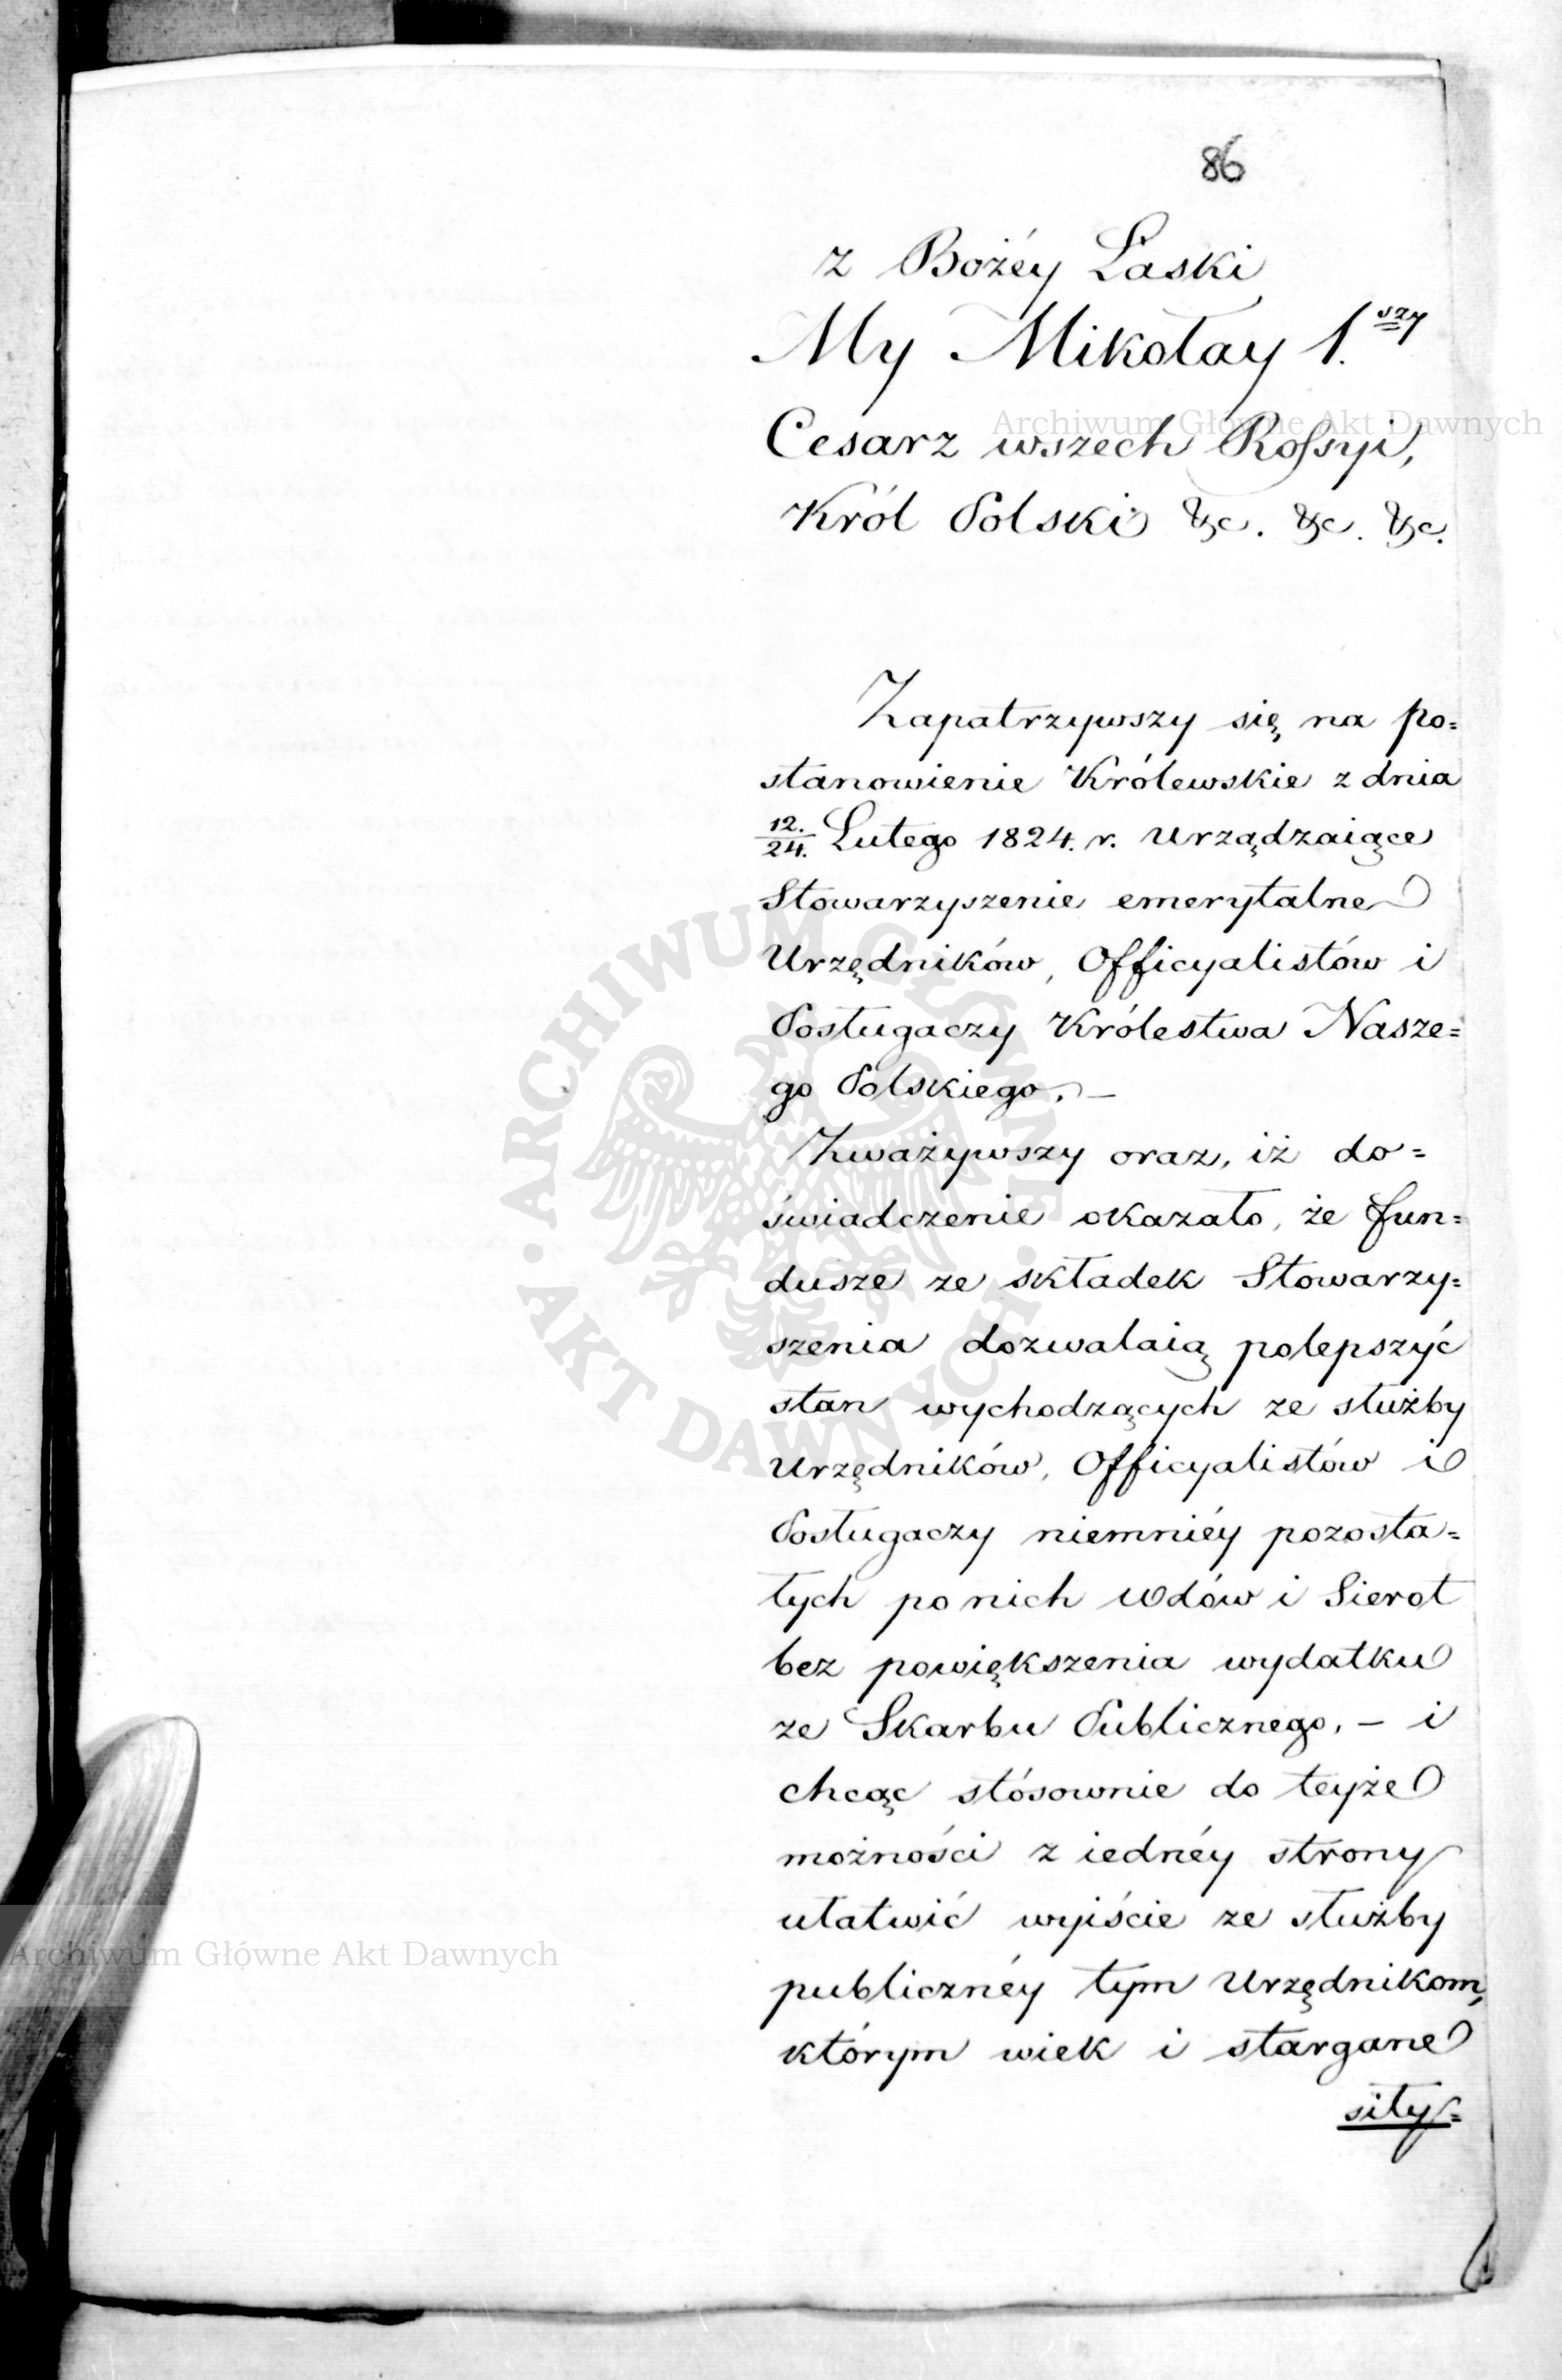 86
z Bożéy Łaski
My Mikołay 1.szy
Cesarz wszech Rossyi,
Król Polski &c. &c. &c.
Zapatrzywszy się na po=
stanowienie Królewskie z dnia
12./24. Lutego 1824. r. urządzaiące
Stowarzyszenie emerytalne
Urzędników, Officyalistów i
Posługaczy Królestwa Nasze=
go Polskiego. –
Zważywszy oraz, iż do=
świadczenie okazało, że fun=
dusze ze składek Stowarzy=
szenia dozwalaią polepszyć
stan wychodzących ze służby
Urzędników, Officyalistów i
Posługaczy niemniéy pozosta=
łych po nich Wdów i Sierot
bez powiększenia wydatku
ze Skarbu Publicznego, – i
chcąc stósownie do teyże
możności z iednéy strony
ułatwić wyiście ze służby
publicznéy tym Urzędnikom,
którym wiek i stargane
siły=
Archiwum Główne Akt Dawnych
ARCHIWUM GŁÓWNE
· AKT DAWNYCH ·
Archiwum Główne Akt Dawnych